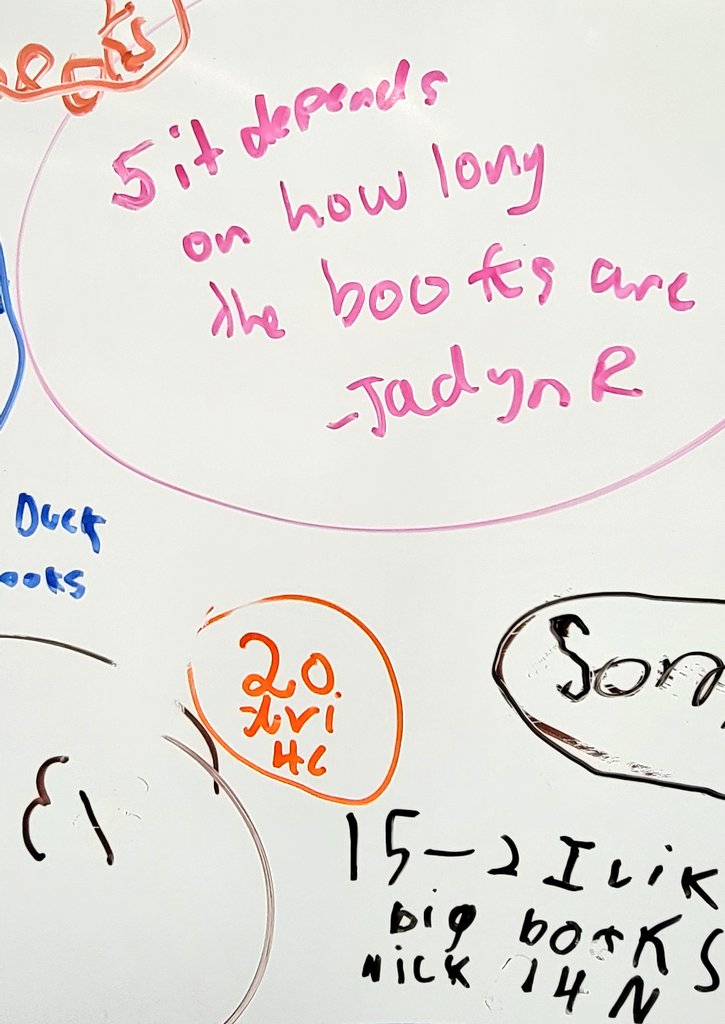 5 it depends
on how long
the books are
-Jadyn R
Duck
ooks
20
4C
Som
15-2 I Lik
big books
NICK 14 N